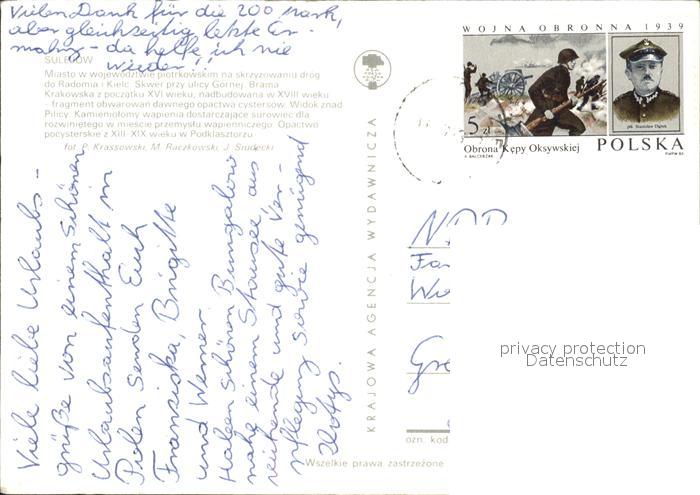 Vielen Dank für die 200 Mark,
aber gleichzeitig letzte Er-
mahng - da helfe ich nie
wieder!!
SULEJÓW
Miasto w województwie piotrkowskim na skrzyżowaniu dróg
do Radomia i Kielc. Skwer przy ulicy Górnej. Brama
Krakowska z początku XVI wieku, nadbudowana w XVIII wieku
- fragment obwarowań dawnego opactwa cystersów. Widok znad
Pilicy. Kamieniołomy wapienia dostarczające surowiec dla
rozwiniętego w mieście przemysłu wapienniczego. Opactwo
pocysterskie z XIII-XIX wieku w Podklasztorzu
fot. P. Krassowski, M. Raczkowski, J. Siudecki
Viele liebe Urlaubs-
grüße von einem schönen
Urlaubsaufenthalt in
Polen senden Euch
Franziska, Brigitte
und Werner
Haben schönen Bungalow
nahe einem Stausee, aus
reichende und gute Ver-
pflegung sowie genügend
Zlotys.
KRAJOWA AGENCJA WYDAWNICZA
WOJNA OBRONNA 1939
5 zł
płk. Stanisław Dąbek
Obrona Kępy Oksywskiej
POLSKA
NDD
Fa
Wa
Gre
privacy protection
Datenschutz
ozn. kod
Wszelkie prawa zastrzeżone